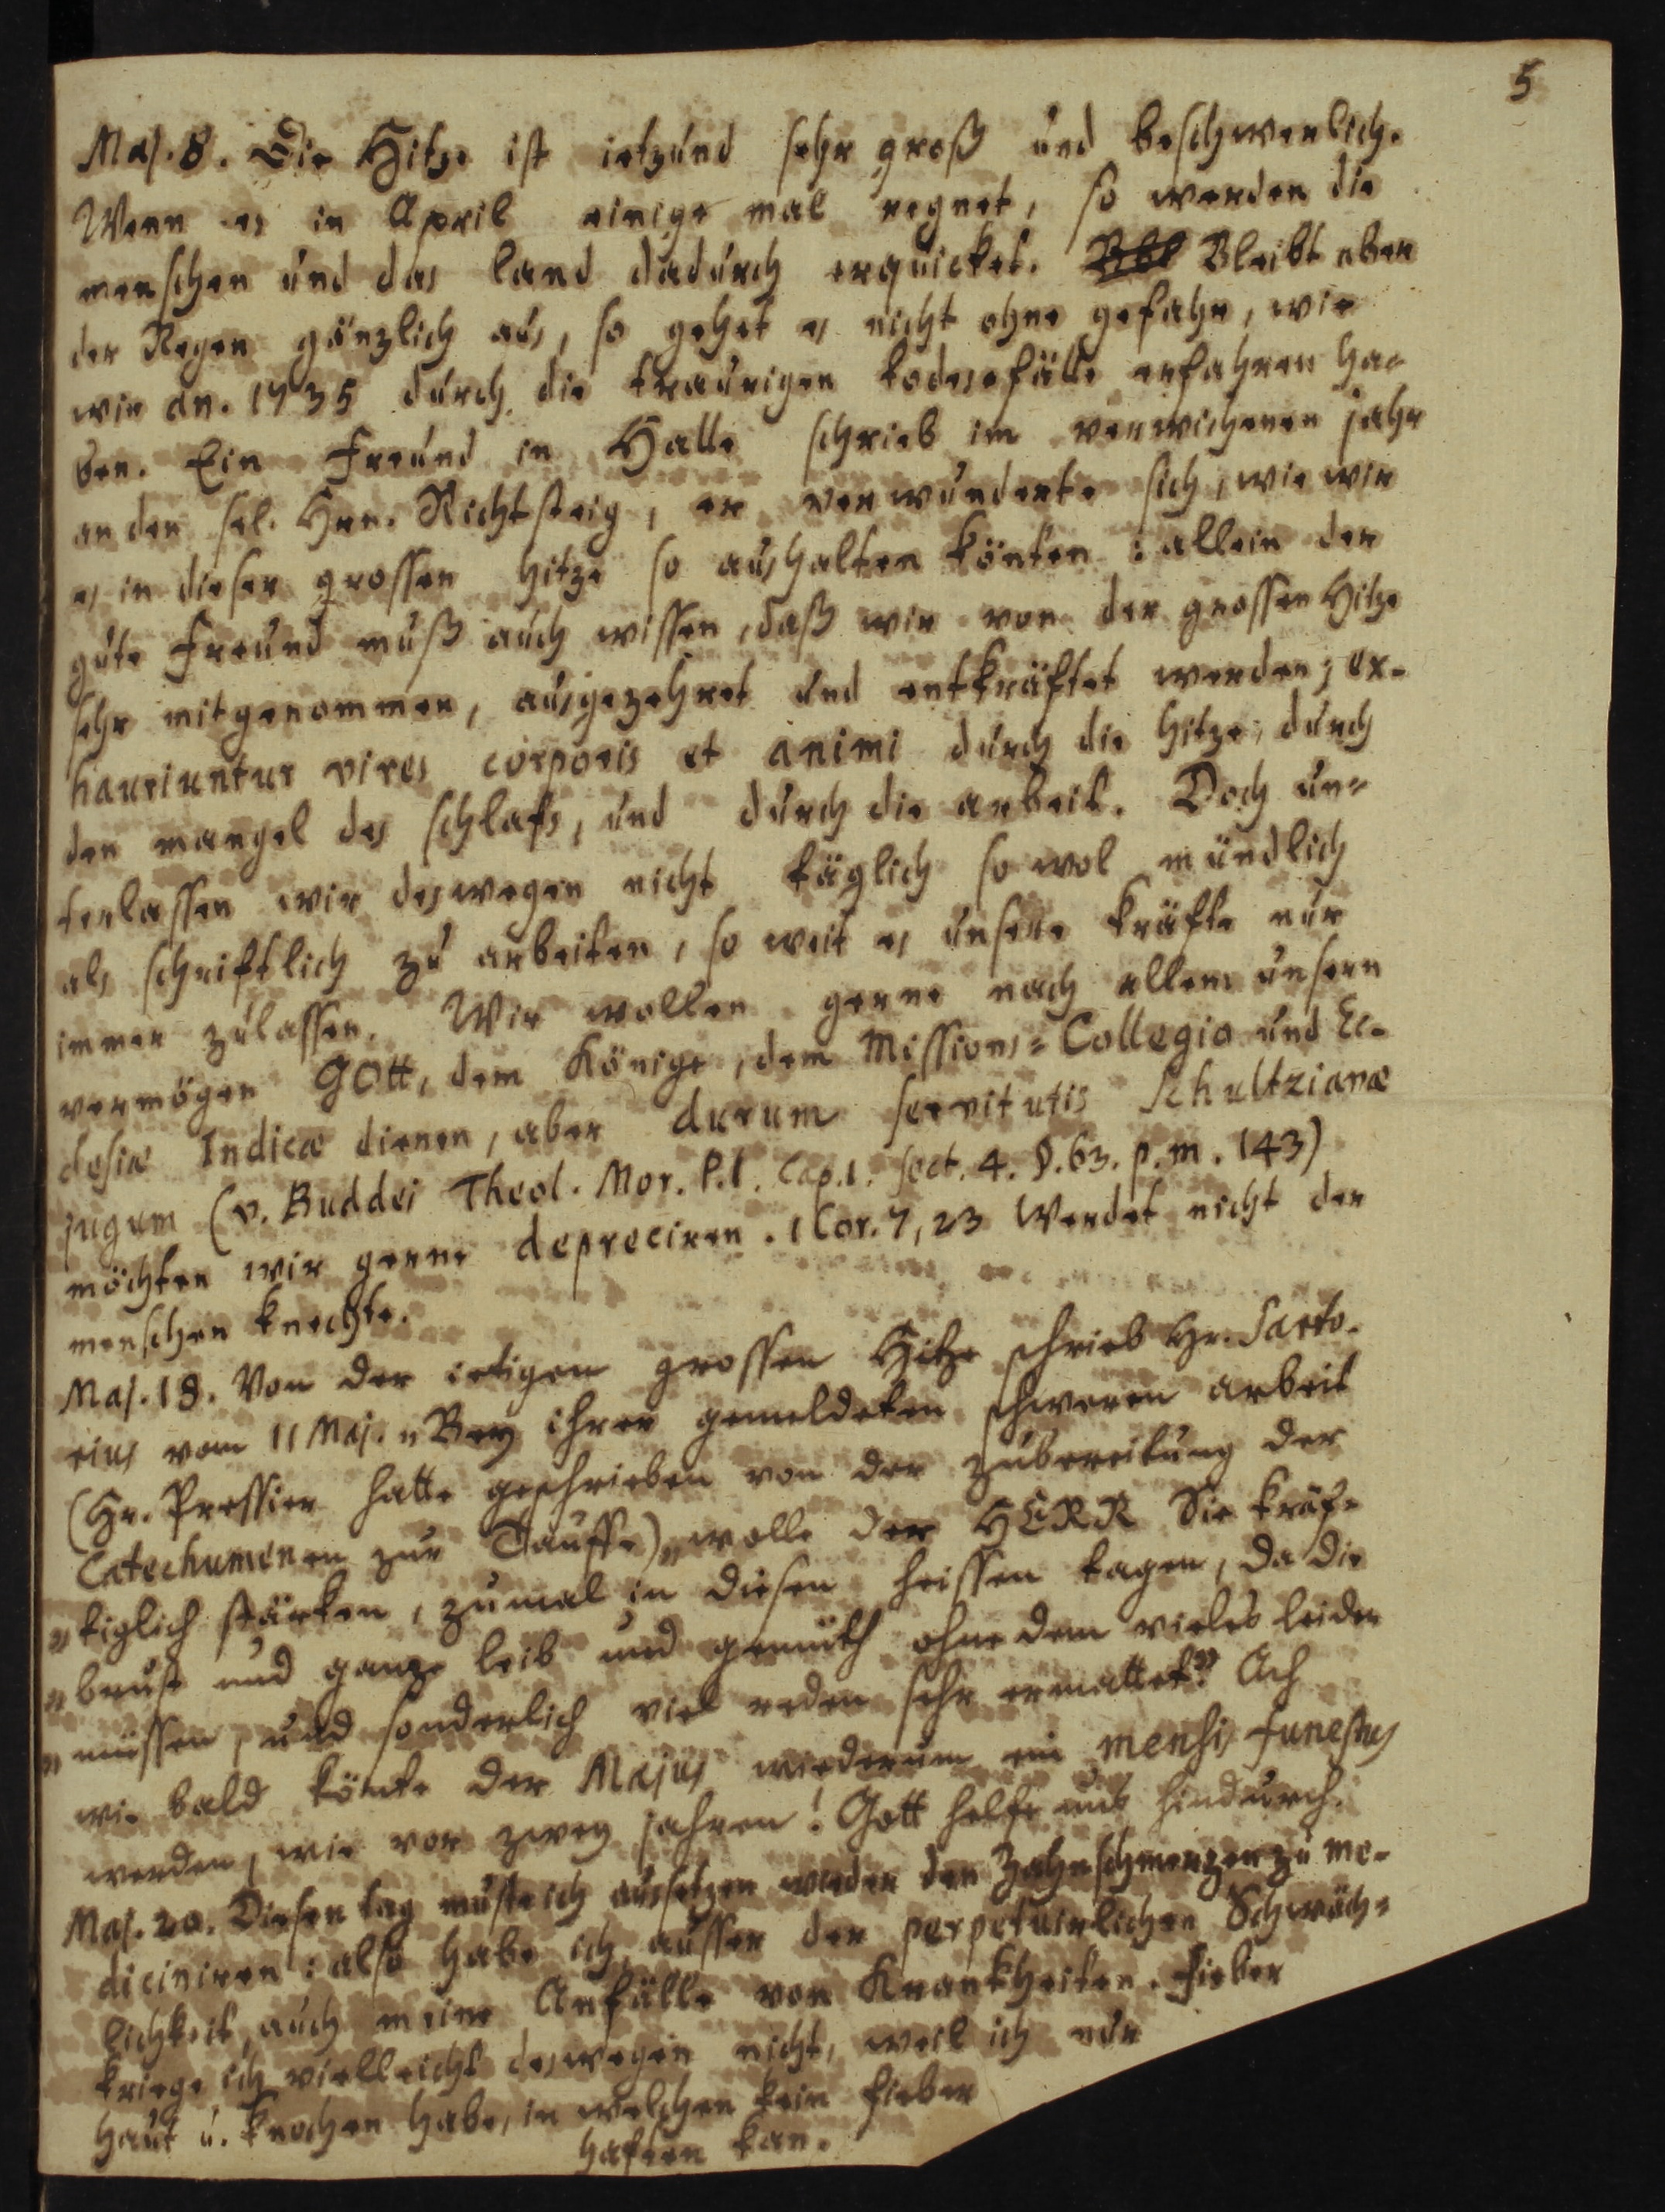 5
Maj. 8. Die Hitze ist ietzund sehr groß und beschwerlich.
Wenn es in April einige mal regnet, so werden die
menschen und das land dadurch erquicket. Bleibt aber
der Regen gänzlich aus, so gehet es nicht ohne gefahr, wie
wir an. 1735 durch die traurigen todesfälle erfahren ha-
ben. Ein Freund in Halle schrieb im verwichenen jahr
an den sel. Hrn. Richtsteig, er verwunderte sich, wie wir
es in dieser grossen hitze so aushalten könten: allein der
gute Freund muß auch wissen, daß wir von der grossen Hitze
sehr mitgenommen, ausgezehret und entkräftet werden; ex-
hauriuntur vires corporis et animi durch die hitze, durch
den mangel des schlafs, und durch die arbeit. Doch un-
terlassen wir deswegen nicht täglich so wol mündlich
als schriftlich zu arbeiten, so weit es unsere kräfte nur
immer zulassen. Wir wollen gerne nach allem unsern
vermögen GOtt, dem Könige, dem Missions-Collegio und Ec-
clesiæ Indicæ dienen, aber durum servitutis Schultzianæ
jugum (v. Buddei Theol. Mor. P.I. Cap.I. Sect. 4. §.63. p.m. 143)
möchten wir gerne depreciren. 1 Cor. 7, 23 Werdet nicht der
menschen knechte.
Maj. 18. Von der ietigen grossen Hitze schrieb Hr. Sarto-
rius vom 11 Maj. „Bey ihrer gemeldeten schweren arbeit
(Hr. Pressier hatte geschrieben von der zubereitung der
Catechumenen zur Tauffe) „wolle der HERR Sie kräf-
„tiglich stärken, zumal in diesen heissen tagen, da die
„brust und ganze leib und gemüth ohne dem vieles leiden
„müssen, und sonderlich viel reden sehr ermattet." Ach
wie bald könte der Majus wiederum ein mensis funestus
werden, wie vor zwey jahren! Gott helfe uns hindurch.
Maj. 20. Diesen tag muste ich aussetzen wieder den Zahnschmerzen zu me-
diciniren: also habe ich, ausser der perpetuirlichen Schwäch-
lichkeit, auch meine Anfälle von Krankheiten. Fieber
kriege ich vielleicht deswegen nicht, weil ich nur
haut u. knochen habe, in welchen kein fieber
haften kan.